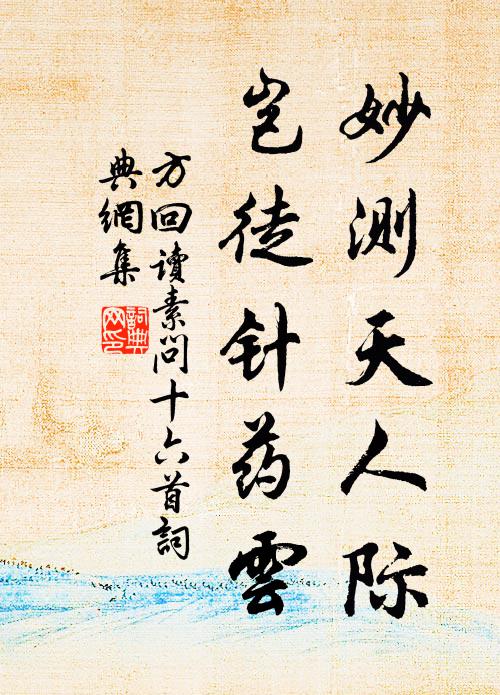 妙测天人际
岂徒针药雲
方回讀素问十六首詞
典網集
詞典網印